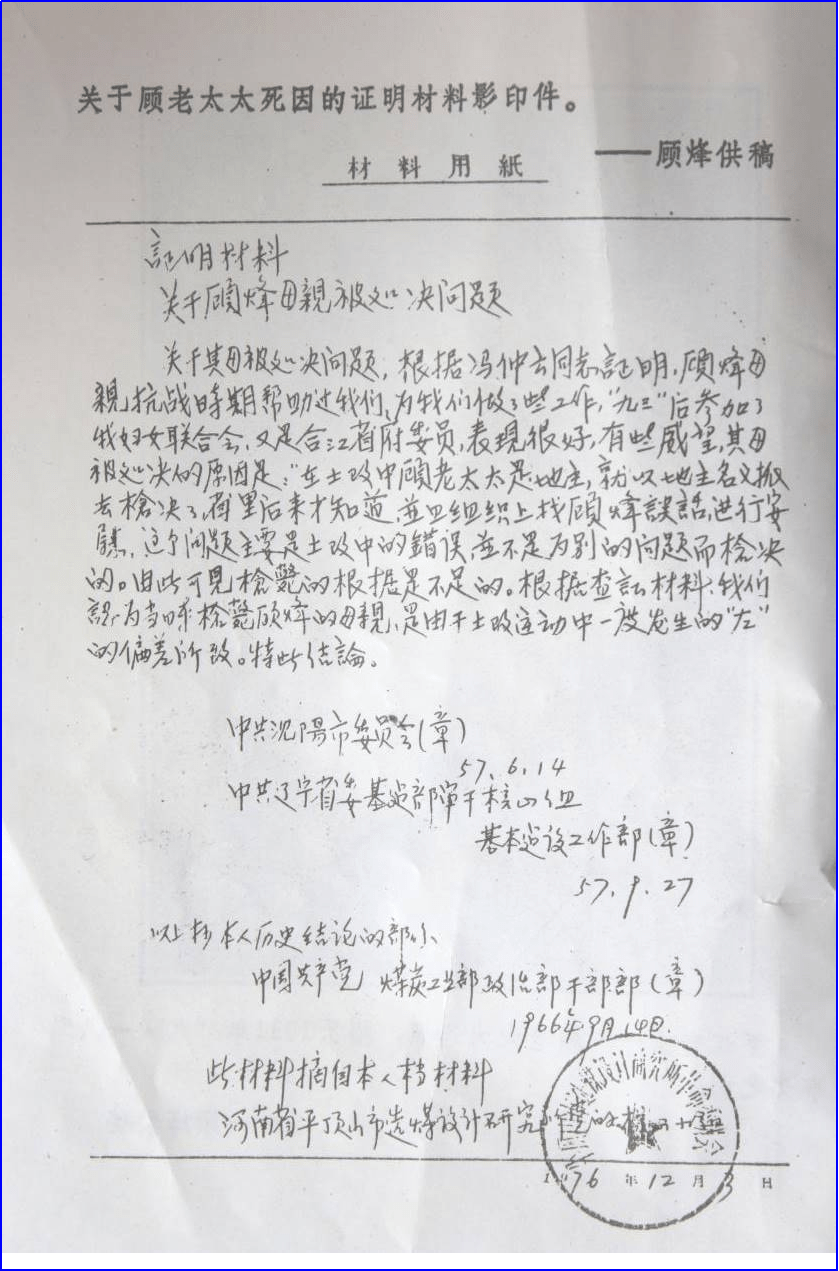 关于顾老太太死因的证明材料影印件。
——顾烽供稿
材料用紙
証明材料
关于顾烽母親被处决问题
关于其母被处决问题，根据冯仲云同志証明，顾烽母
親抗战時期帮助过我们，为我们做了些工作，“九三”后参加了
我妇女联合会，又是合江省府委员，表現很好，有些威望，其母
被处决的原因是：“在土改中顾老太太是地主，就以地主名义抓
去槍决了，省里后来才知道，並且组织上找顾烽談話，进行安
慰，这个问题主要是土改中的錯误，並不是为别的问题而槍决
的。由此可見槍斃的根据是不足的。根据查証材料，我们
認为当時槍斃顾烽的母親，是由于土改运动中一度发生的“左”
的偏差所致。特此结論。
中共沈陽市委員会（章）
57.6.14
中共辽宁省委基建部审干核心组
基本建设工作部（章）
57.9.27
以上抄本人历史结论的部份、
中国共产党 煤炭工业部政治部干部部（章）
1966年9月14日.
此材料摘自本人档材料
河南省平顶山市选煤设计研究
1976年12月3日